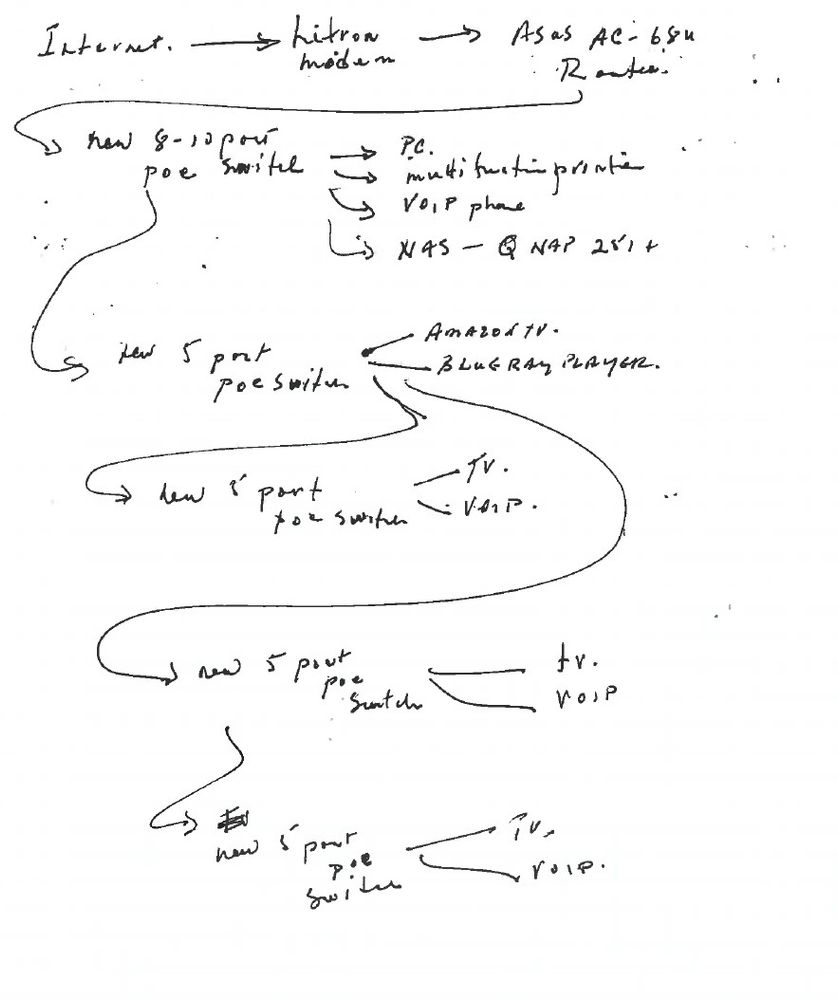 Internet. → Litron modem → Asus AC-68u Router.
new 8-10 port
poe switch
PC.
multifunction printer
VOIP phone
NAS - QNAP 251+
new 5 port
poe switch
AMAZON TV.
BLUERAY PLAYER.
new 5 port
poe switch
TV.
VOIP.
new 5 port
poe
switch
tv.
VOIP
new 5 port
poe
switch
TV.
VOIP.